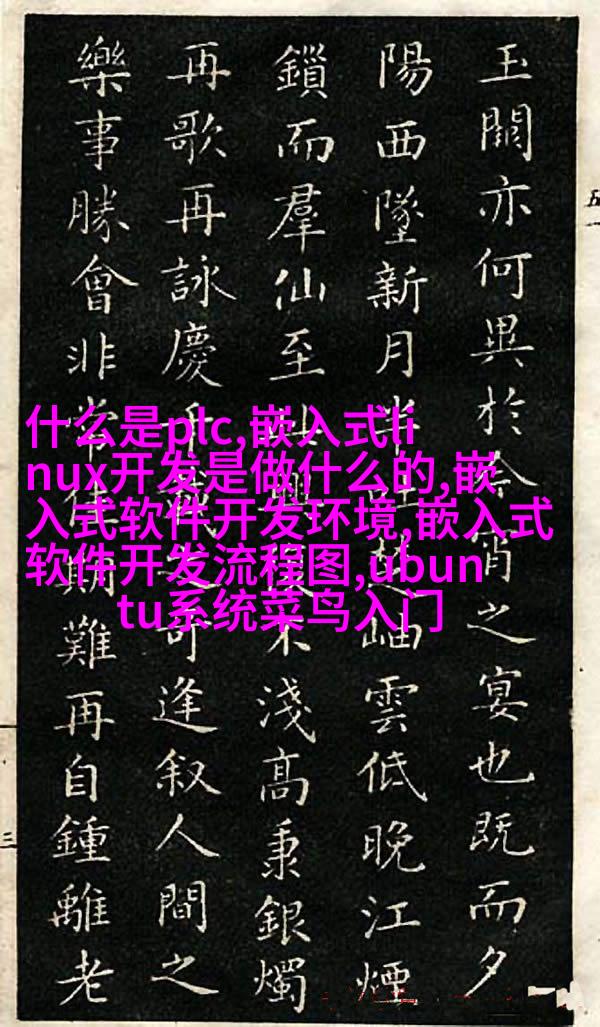 玉闕亦何異於今宵之宴也既而夕
陽西墜新月半吐楚岫雲低晚江煙
鎖而羣仙至此興不淺高秉銀燭
再歌再詠慶千載之可逢叙人間之
樂事勝會非常佳期難再自鍾離老
什么是plc,嵌入式li
nux开发是做什么的,嵌
入式软件开发环境,嵌入式
软件开发流程图,ubun
tu系统菜鸟入门
五一
三